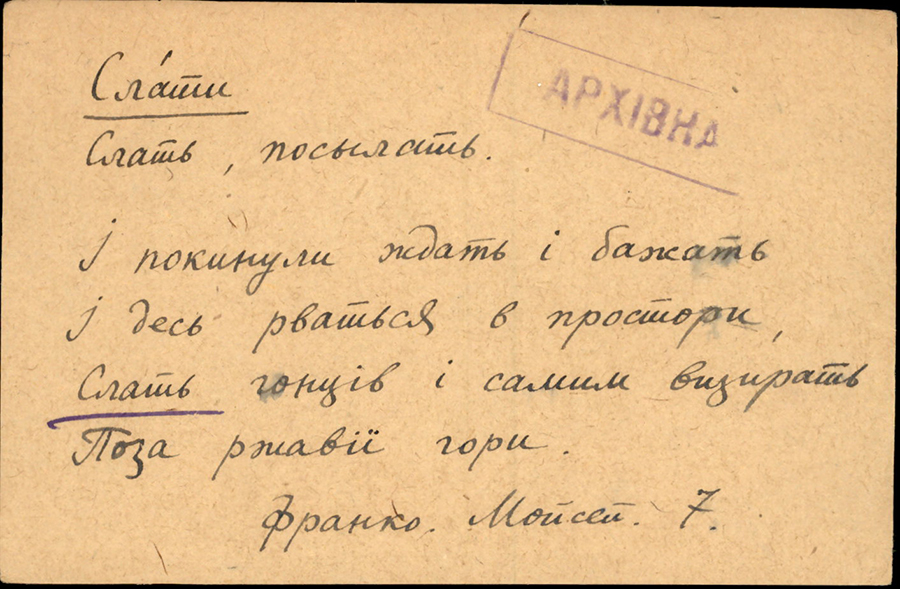 Сла́ти
АРХІВНА
Слать, посылать.
І покинули ждать і бажать
І десь рваться в простори,
Слать гонців і самим визирать
Поза ржавії гори.
Франко. Мойсей. 7.